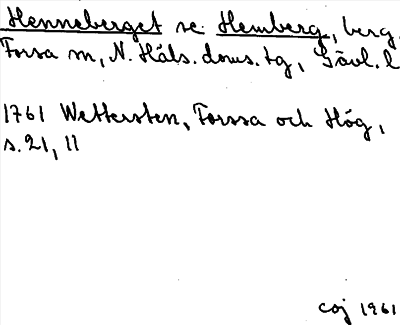 Henneberget se Hemberg, berg.
Forsa m, N. Häls. doms. tg, Gävl. l
1761 Wettersten, Forssa och Hög,
s. 21, 11
coj 1961